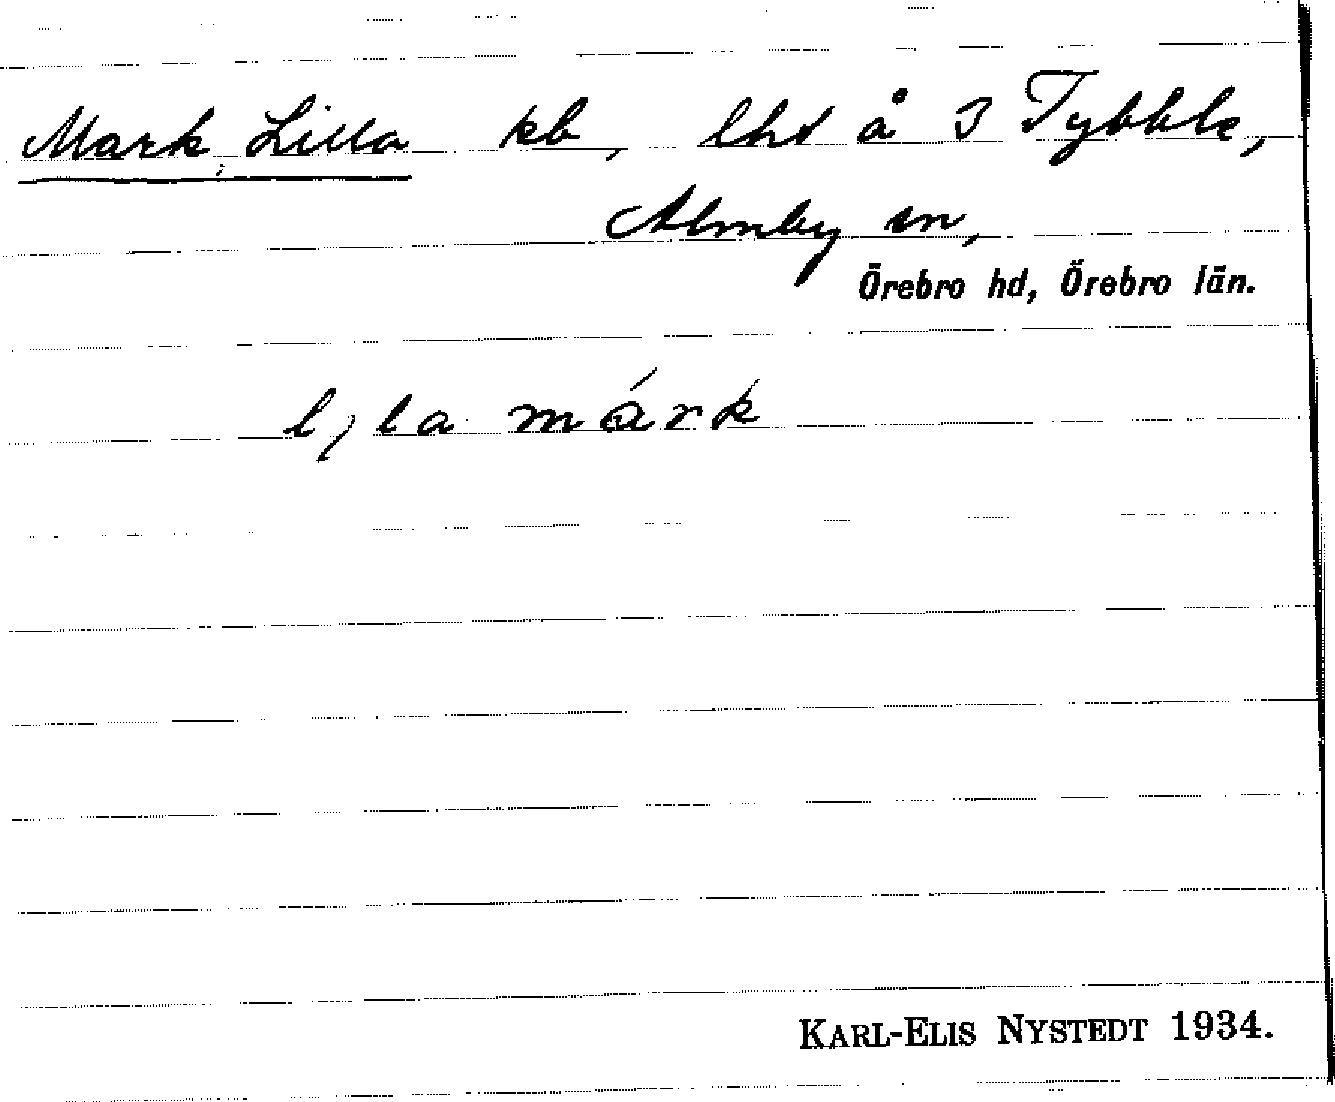 Mark, Lilla kb, lht å 3 Tybble,
Almby sn,
Örebro hd, Örebro län.
l, la márk
KARL-ELIS NYSTEDT 1934.